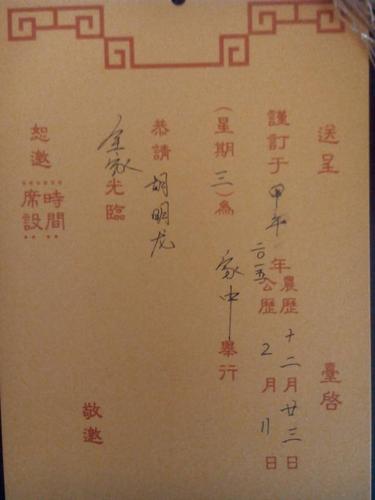 送呈 臺啓
謹訂于甲午年農歷十二月廿三日
二〇一五 公歷2月11日
(星期三)為家中舉行
恭請 胡明龙
全家光臨
敬邀
恕邀
時間
席設